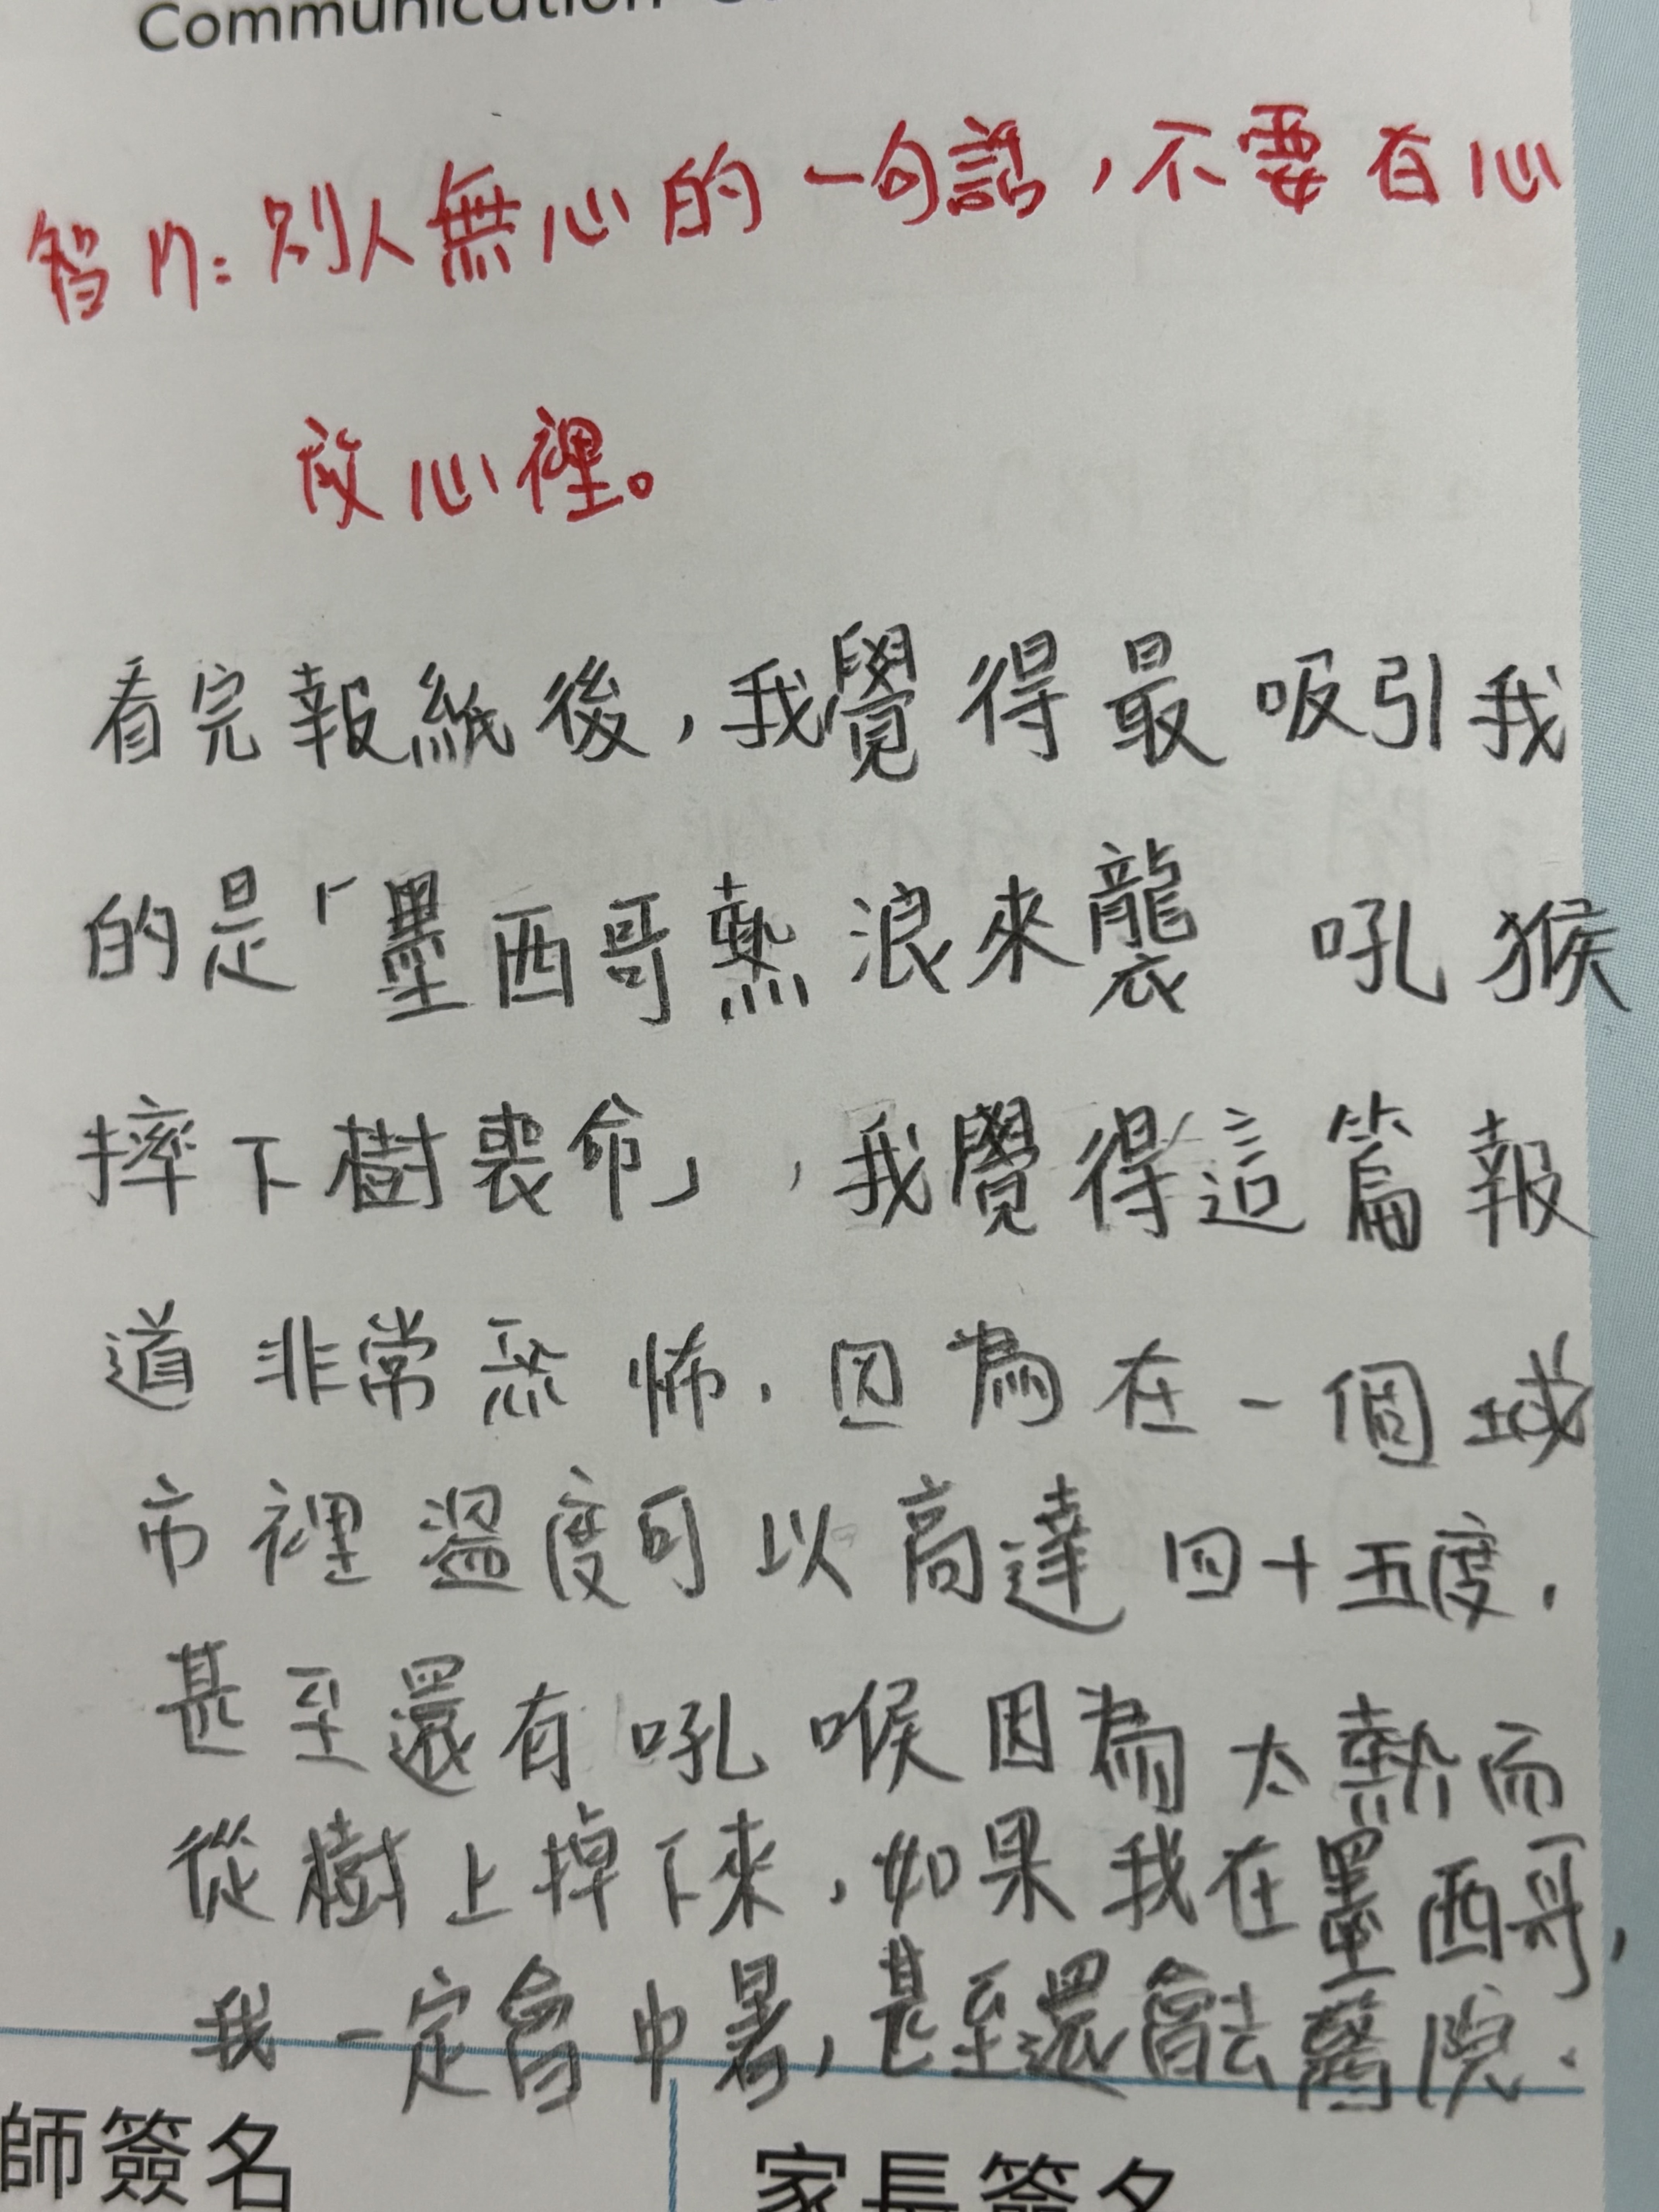 Communication
智慧:別人無心的一句話,不要有心
放心裡。
看完報紙後,我覺得最吸引我
的是「墨西哥熱浪來襲 吼猴
摔下樹喪命」,我覺得這篇報
道非常恐怖,因為在一個城
市裡溫度可以高達四十五度,
甚至還有吼喉因為太熱而
從樹上掉下來,如果我在墨西哥,
我一定會中暑,甚至還會去醫院.
師簽名
家長簽名